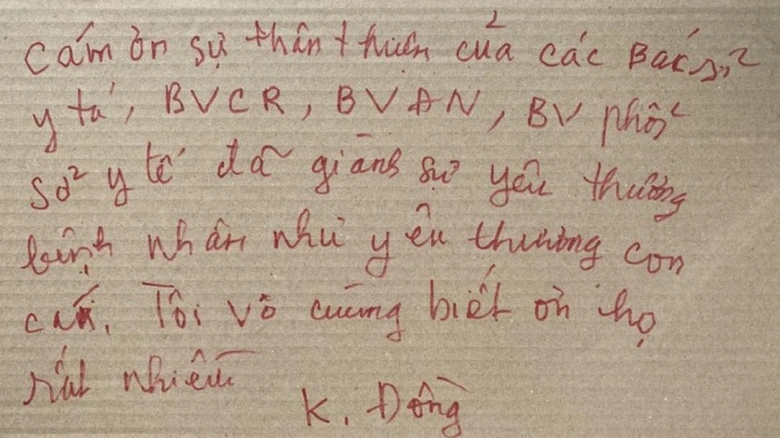 Cám ơn sự thân thiện của các Bác sĩ
y tá, BVCR, BVAN, BV phổi
Sở y tế đã giành sự yêu thương
bệnh nhân như yêu thương con
cái. Tôi vô cùng biết ơn họ
rất nhiều
K. Đồng